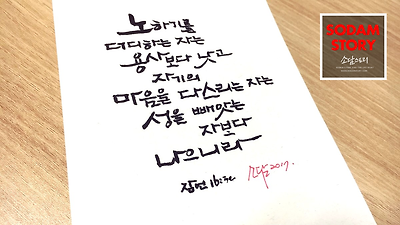 노하기를
더디하는 자는
용사보다 낫고
자기의
마음을 다스리는 자는
성을 빼앗는
자보다
나으니라
잠언 16:32
소담 2017.
SODAM
STORY
소담이야기